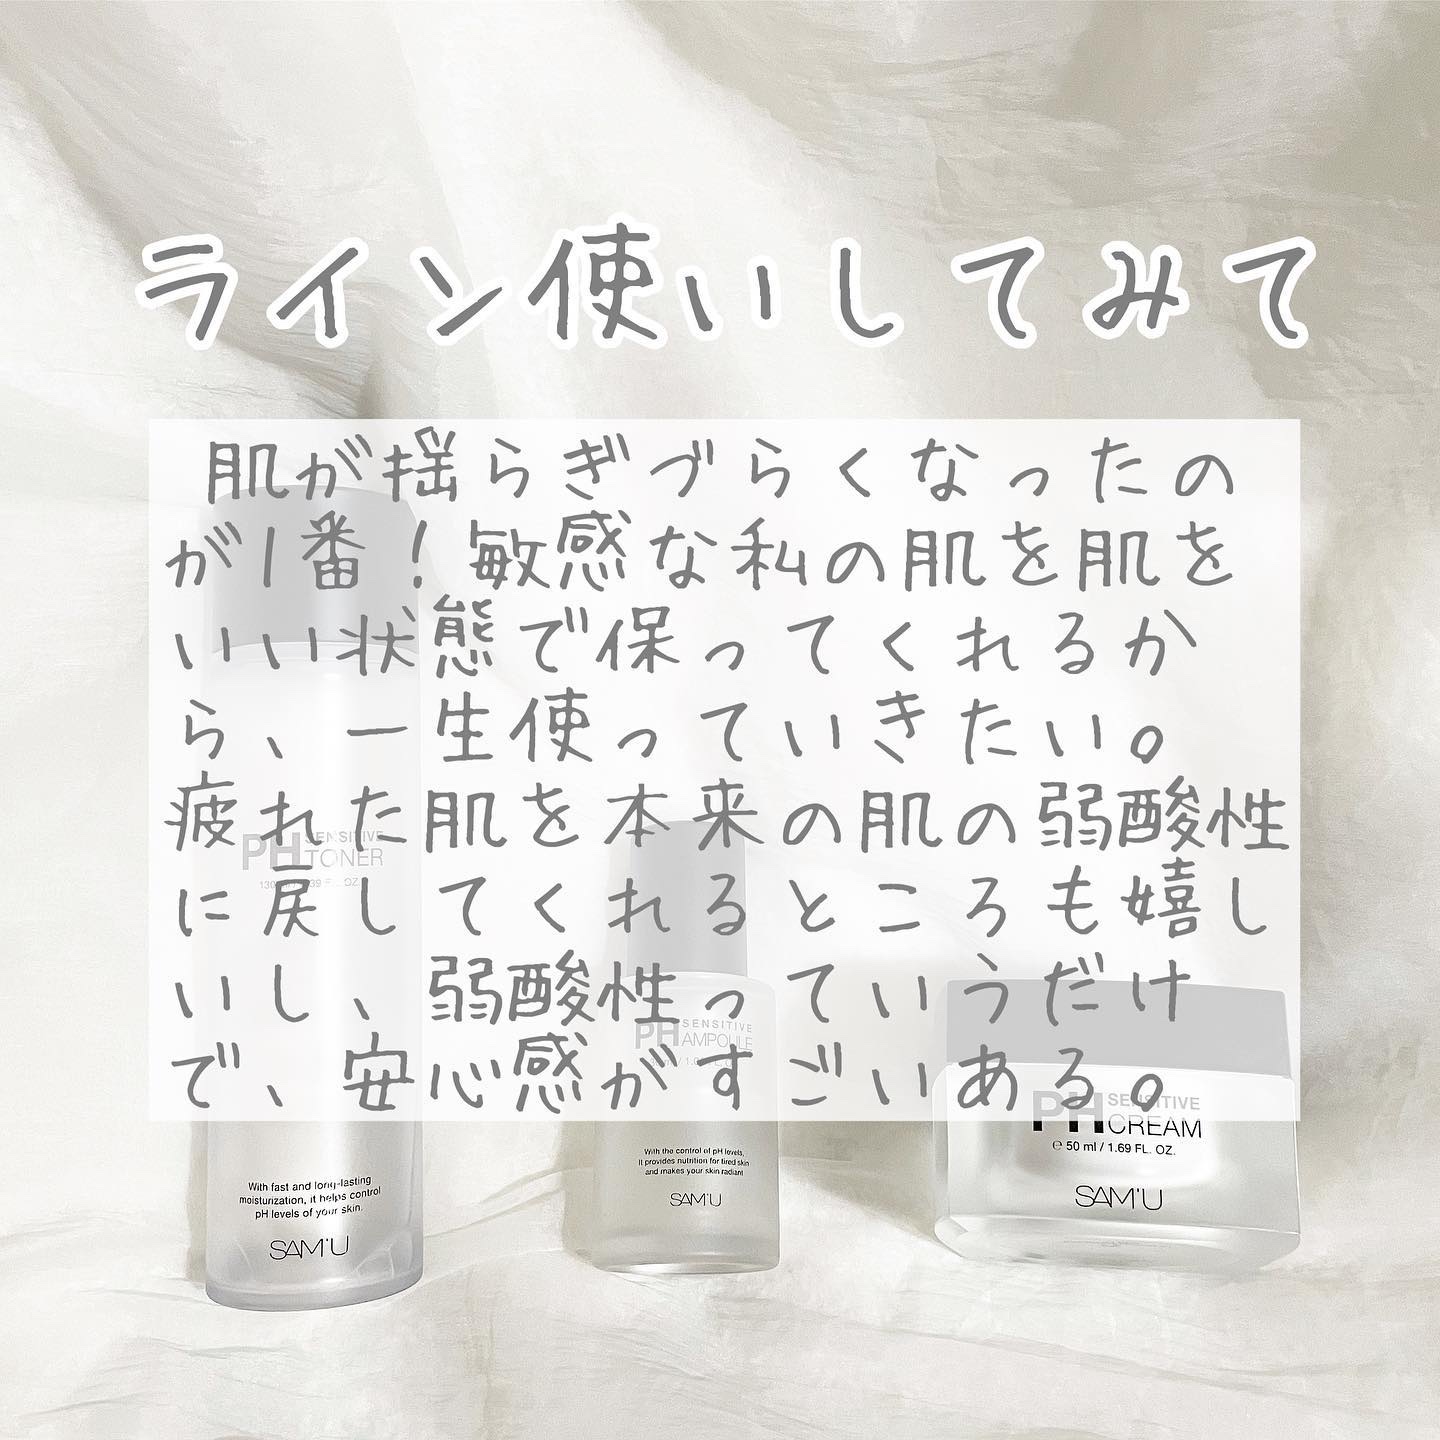 ライン使いしてみて
肌が揺らぎづらくなったの
が1番！敏感な私の肌を肌を
いい状態で保ってくれるか
ら、一生使っていきたい。
疲れた肌を本来の肌の弱酸性
に戻してくれるところも嬉し
いし、弱酸性っていうだけ
で、安心感がすごいある。
PH SENSITIVE
TONER
With fast and long-lasting
moisturization, it helps control
pH levels of your skin.
SAM'U
PH SENSITIVE
AMPOULE
With the control of pH levels,
It provides nutrition for tired skin
and makes your skin radiant
SAM'U
PH SENSITIVE
CREAM
℮ 50 ml / 1.69 FL. OZ.
SAM'U